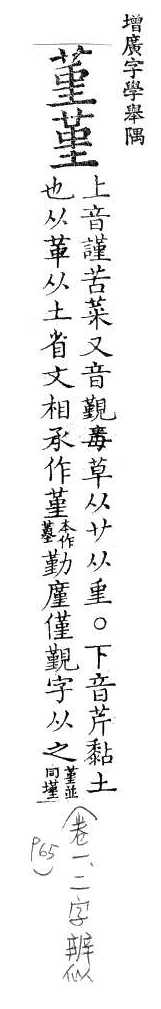 增廣字學舉隅
菫堇
上音謹苦菜又音覲毒草从艹从重○下音芹黏土
也从革从土省文相承作堇本作墓勤廑僅覲字从之菫並同墐
(卷一、二字辨似
P65)